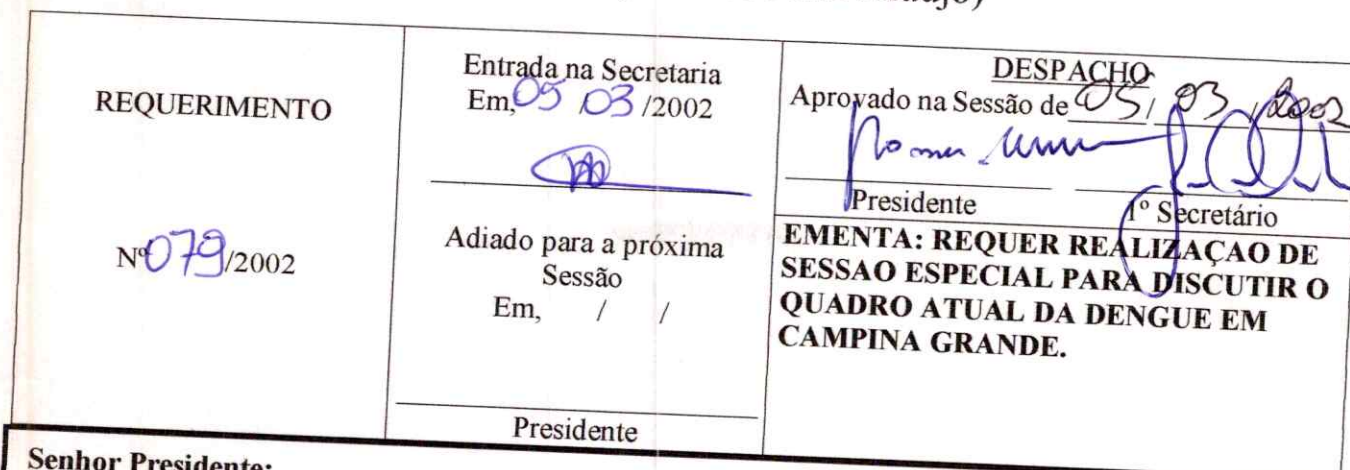 REQUERIMENTO
Nº 079/2002
Entrada na Secretaria
Em, 05 03/2002
Adiado para a próxima
Sessão
Em, / /
Presidente
DESPACHO
Aprovado na Sessão de 05/ 03 /2002
Presidente 1º Secretário
EMENTA: REQUER REALIZAÇAO DE
SESSAO ESPECIAL PARA DISCUTIR O
QUADRO ATUAL DA DENGUE EM
CAMPINA GRANDE.
Senhor Presidente: